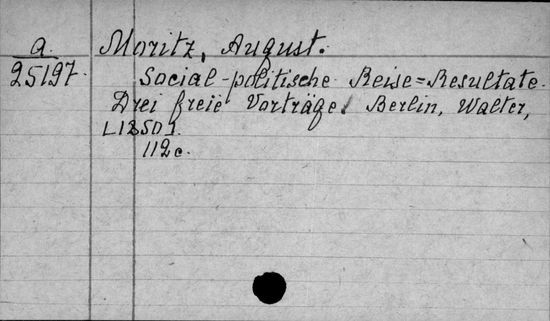 a.
25197.
Moritz, August.
Social-politische Reise=Resultate.
Drei freie Vorträge. Berlin, Walter,
[1850].
112c.